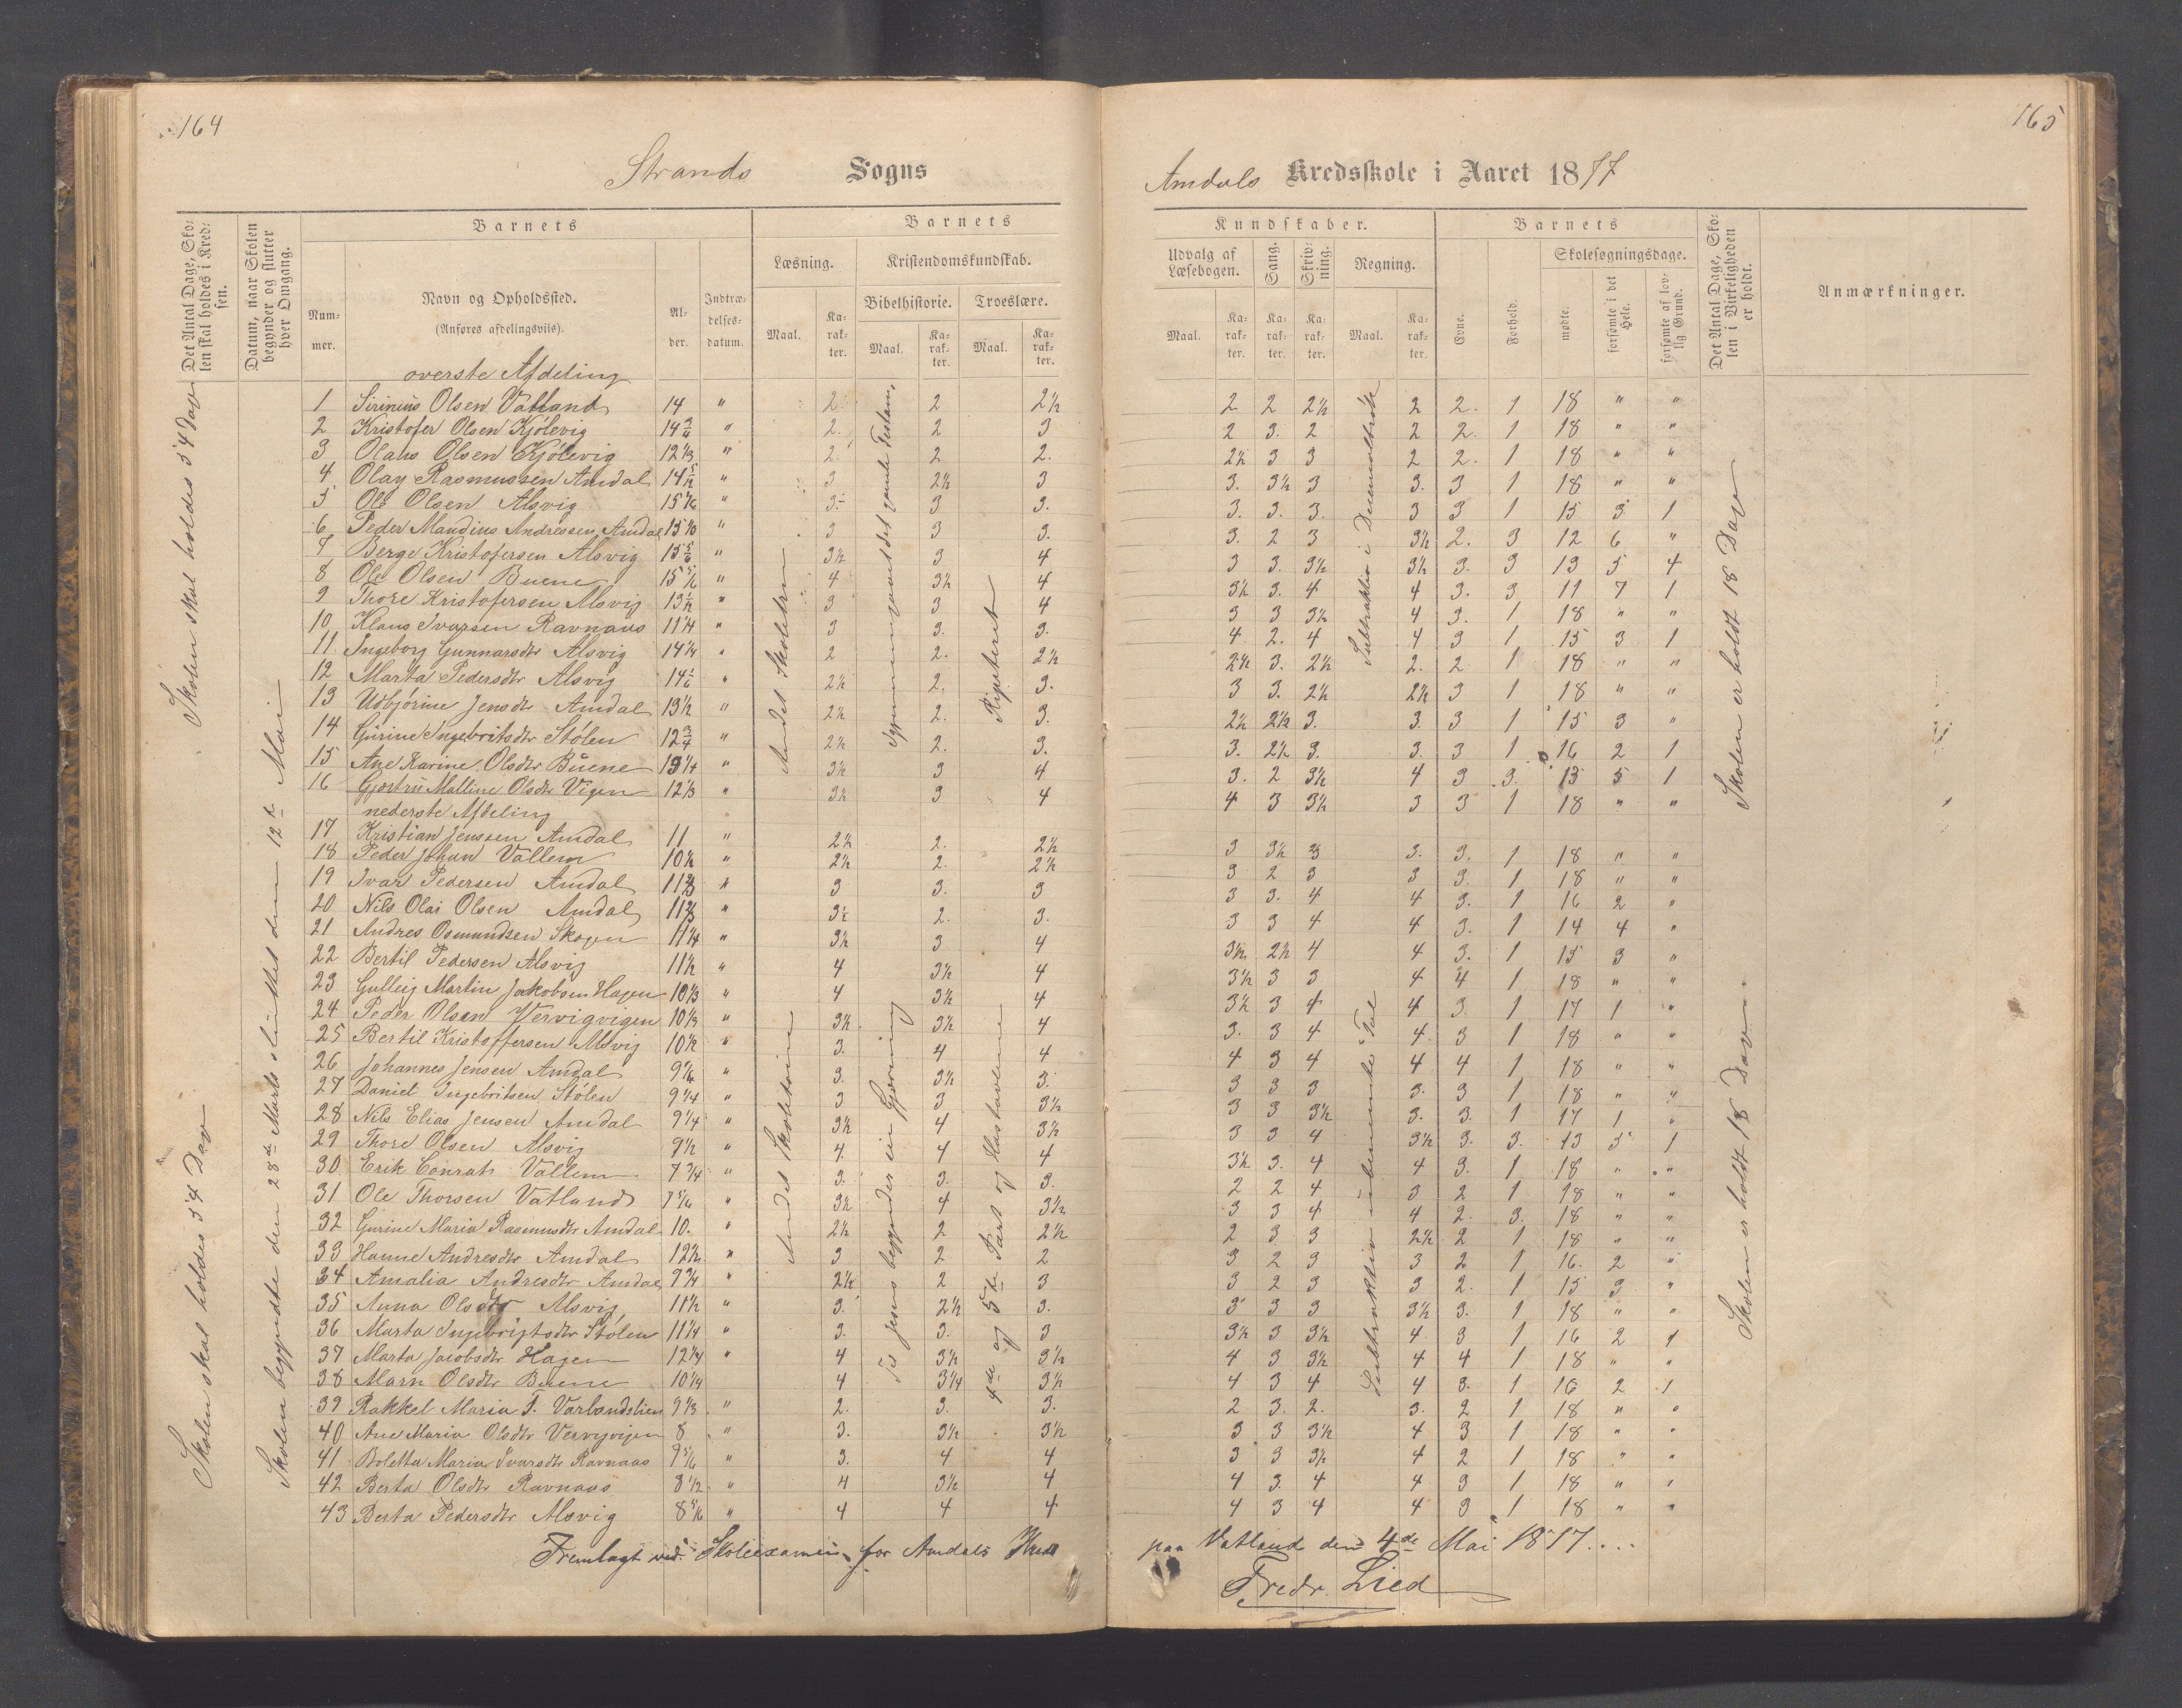 164
165
Strands Sogns
Amdals Kredsskole i Aaret 1877
Det Antal Dage, Skolen skal holdes i Kredsen.
Datum, naar Skolen begynder og slutter hver Omgang.
Barnets
Nummer.
Navn og Opholdssted.
(Anføres afdelingsviis).
Alder.
Indtrædelsesdatum.
Barnets
Læsning.
Maal.
Karakter.
Kristendomskundskab.
Bibelhistorie.
Maal.
Karakter.
Troeslære.
Maal.
Karakter.
Kundskaber.
Udvalg af Læsebogen.
Maal.
Karakter.
Sang.
Karakter.
Skrivning.
Karakter.
Regning.
Maal.
Karakter.
Barnets
Evne.
Forhold.
Skolesøgningsdage.
mødte.
forsømte i det Hele.
forsømte af lovlig Grund.
Det Antal Dage, Skolen i Virkeligheden er holdt.
Anmærkninger.
Skolen skal holdes 54 Dage
Skolen skal holdes 54 Dav
Skolen begyndte den 28de Marts sluttet den 12te Mai
overste Afdeling
1 Sirinius Olsen Vatland 14 " 2. 2 2½ 2 2 2½ 2 2. 1 18 " "
2 Kristofer Olsen Kjólevig 14¾ " 2. 2 3 2 3. 2 2 2. 1 18 " "
3 Olaus Olsen Kjólevig 12⅓ " 2. 2 2. 2½ 3 3 2 2. 1 18 " "
4 Olay Rasmussen Amdal 14 5/12 " 3 2½ 3 3. 3½ 3 3. 3 1 18 " "
5 Ole Olsen Alsvig " 3. 3 3. 3. 3. 3. 3 3 1 15 3 1
6 Peder Mandius Andressen Amdal " 3 3 3. 3. 2 3 3½ 2. 3 12 6 "
7 Berge Kristofersen Alsvig 15⅚ " 3½ 3 4 3 3. 3½ 3½ 3. 3 13 5 4
8 Ole Olsen Buene " 4 3½ 4 3½ 3. 4 4 3. 3 11 7 1
9 Thore Kristofersen Alsvig 13½ " 3 3 4 3 3 3½ 4 3. 1 18 " "
10 Klaus Ivarsen Ravnaas 11¼ " 3 3. 3. 4 2. 4 4 3 1 15 3 1
11 Ingeborg Gunnarsdtr Alsvig 14¼ " 2 2. 2½ 2½ 3. 2½ 2. 2 1 18 " "
12 Marta Pedersdtr Alsvig 14⅙ " 2½ 2. 3. 3 3. 2½ 2½ 3 1 18 " "
13 Udbjórine Jensdtr Amdal 13½ " 2½ 2. 3. 2½ 2½ 3. 3. 3 1 15 3 "
14 Gurine Ingebritsdtr Stólen 12¾ " 2½ 2. 3. 3. 2½ 3. 3. 3 1 16 2 1
15 Ane Karine Olsdtr Buene 13¼ " 3½ 3 4 3. 2 3½ 4 3 3. 13 5 1
16 Gjørtru Malline Olsdtr Vigen 12⅓ " 3½ 3 4 4 3 3½ 3 3 1 18 " "
nederste Afdeling
17 Kristian Jenssen Amdal 11 " 2½ 2. 2½ 3 3½ 3 3. 3. 1 18 " "
18 Peder Johan Vallem 10½ " 2½ 2. 2½ 3 2 3 3 3. 1 18 " "
19 Ivar Pedersen Amdal 11⅔ " 3 3. 3 3 3. 4 4 3. 1 16 2 "
20 Nils Olai Olsen Amdal 11⅔ " 3½ 2. 3. 3 3 4 4 3. 1 14 4 "
21 Andres Osmundsen Skogen 11¼ " 3½ 3 4 3½ 2½ 4 4 3. 1 15 3 "
22 Bertil Pedersen Alsvig 11½ " 4 3½ 4 3½ 3 3 4 4 1 18 " "
23 Gulleig Martin Jakobsen Hagen 10⅓ " 4 3½ 4 3½ 3 4 4 3. 1 17 1 "
24 Peder Olsen Vervigvigen 10⅓ " 3½ 3½ 4 3. 3 4 4 3 1 18 " "
25 Bertil Kristoffersen Alsvig 10½ " 3. 4 4 4 3 4 4 4 1 18 " "
26 Johannes Jensen Amdal 9⅙ " 3. 3½ 3. 3 3 3 3. 3 1 18 " "
27 Daniel Ingebritsen Stólen 9¼ " 3 3 3½ 3 3 3½ 3. 3. 1 17 1 "
28 Nils Elias Jensen Amdal 9¼ " 3½ 4 3½ 3 3 4 3½ 3. 3. 13 5 1
29 Thore Olsen Alsvig 9½ " 4. 4 4 3½ 3. 4 4 3. 1 18 " "
30 Erik Conrats Vallem 7¾ " 3. 3. 3. 2 2 4 3 2 1 18 " "
31 Ole Thorsen Vatland 7⅚ " 3½ 4 3½ 3 3 4 4 2. 3. 18 " "
32 Gurine Maria Rasmusdtr Amdal 10. " 2½ 2 2½ 2 3 3 2½ 2 1 18 " "
33 Hanne Andresdtr Amdal 12½ " 3 2 2 3 2 3 3 2 1 16. 2 "
34 Amalia Andresdtr Amdal 9¾ " 2½ 2 3 3 2 3 3 2. 1 15 3 "
35 Anna Olsdtr Alsvig 11½ " 3. 2½ 3. 3 3 3 3½ 3. 1 18 " "
36 Marta Ingebrigtsdtr Stólen 11¼ " 3. 3. 3 3½ 3 3½ 4 3 1 16 2 1
37 Marta Jacobsdtr Hagen 12¼ " 4 3½ 3½ 4 3 3½ 4 4 1 18 " "
38 Marn Olsdtr Buene 10¼ " 4 3¼ 3½ 4 3 4 4 3. 1 16 2 1
39 Rakkel Maria T. Varlandslien 9⅓ " 2. 3. 3. 2 3. 2. 3. 2 1 18 " "
40 Ane Maria Olsdtr Vervigvigen 8 " 3. 3½ 3½ 3 3 3½ 4 3 1 18 " "
41 Boletta Maria Ivarsdtr Ravnaas " 3. 4 4 3 3 3½ 4 2 1 18 " "
42 Berta Olsdtr Ravnaas 8½ " 4 3½ 4 4 3. 4 4 3 1 18 " "
43 Berta Pedersdtr Alsvig 8⅚ " 4 4 4 4 3 4 4 3 1 18 " "
Andet Skoletrin
Igjennemgaaet det gamle Testam,
Repeteret
Subtraktion i Decimalbrök
Andet Skoletrin
Til Jesus begynder sin Gjerning
4de og 5te Part og Hustavlen
Subtraktion i ubenævnte Tal
Skolen er holdt 18 Dage
Skolen er holdt 18 Dav
Fremlagt ved Skoleexamen for Amdals Kreds paa Vatland den 4de Mai 1877....
Fredr. Lied